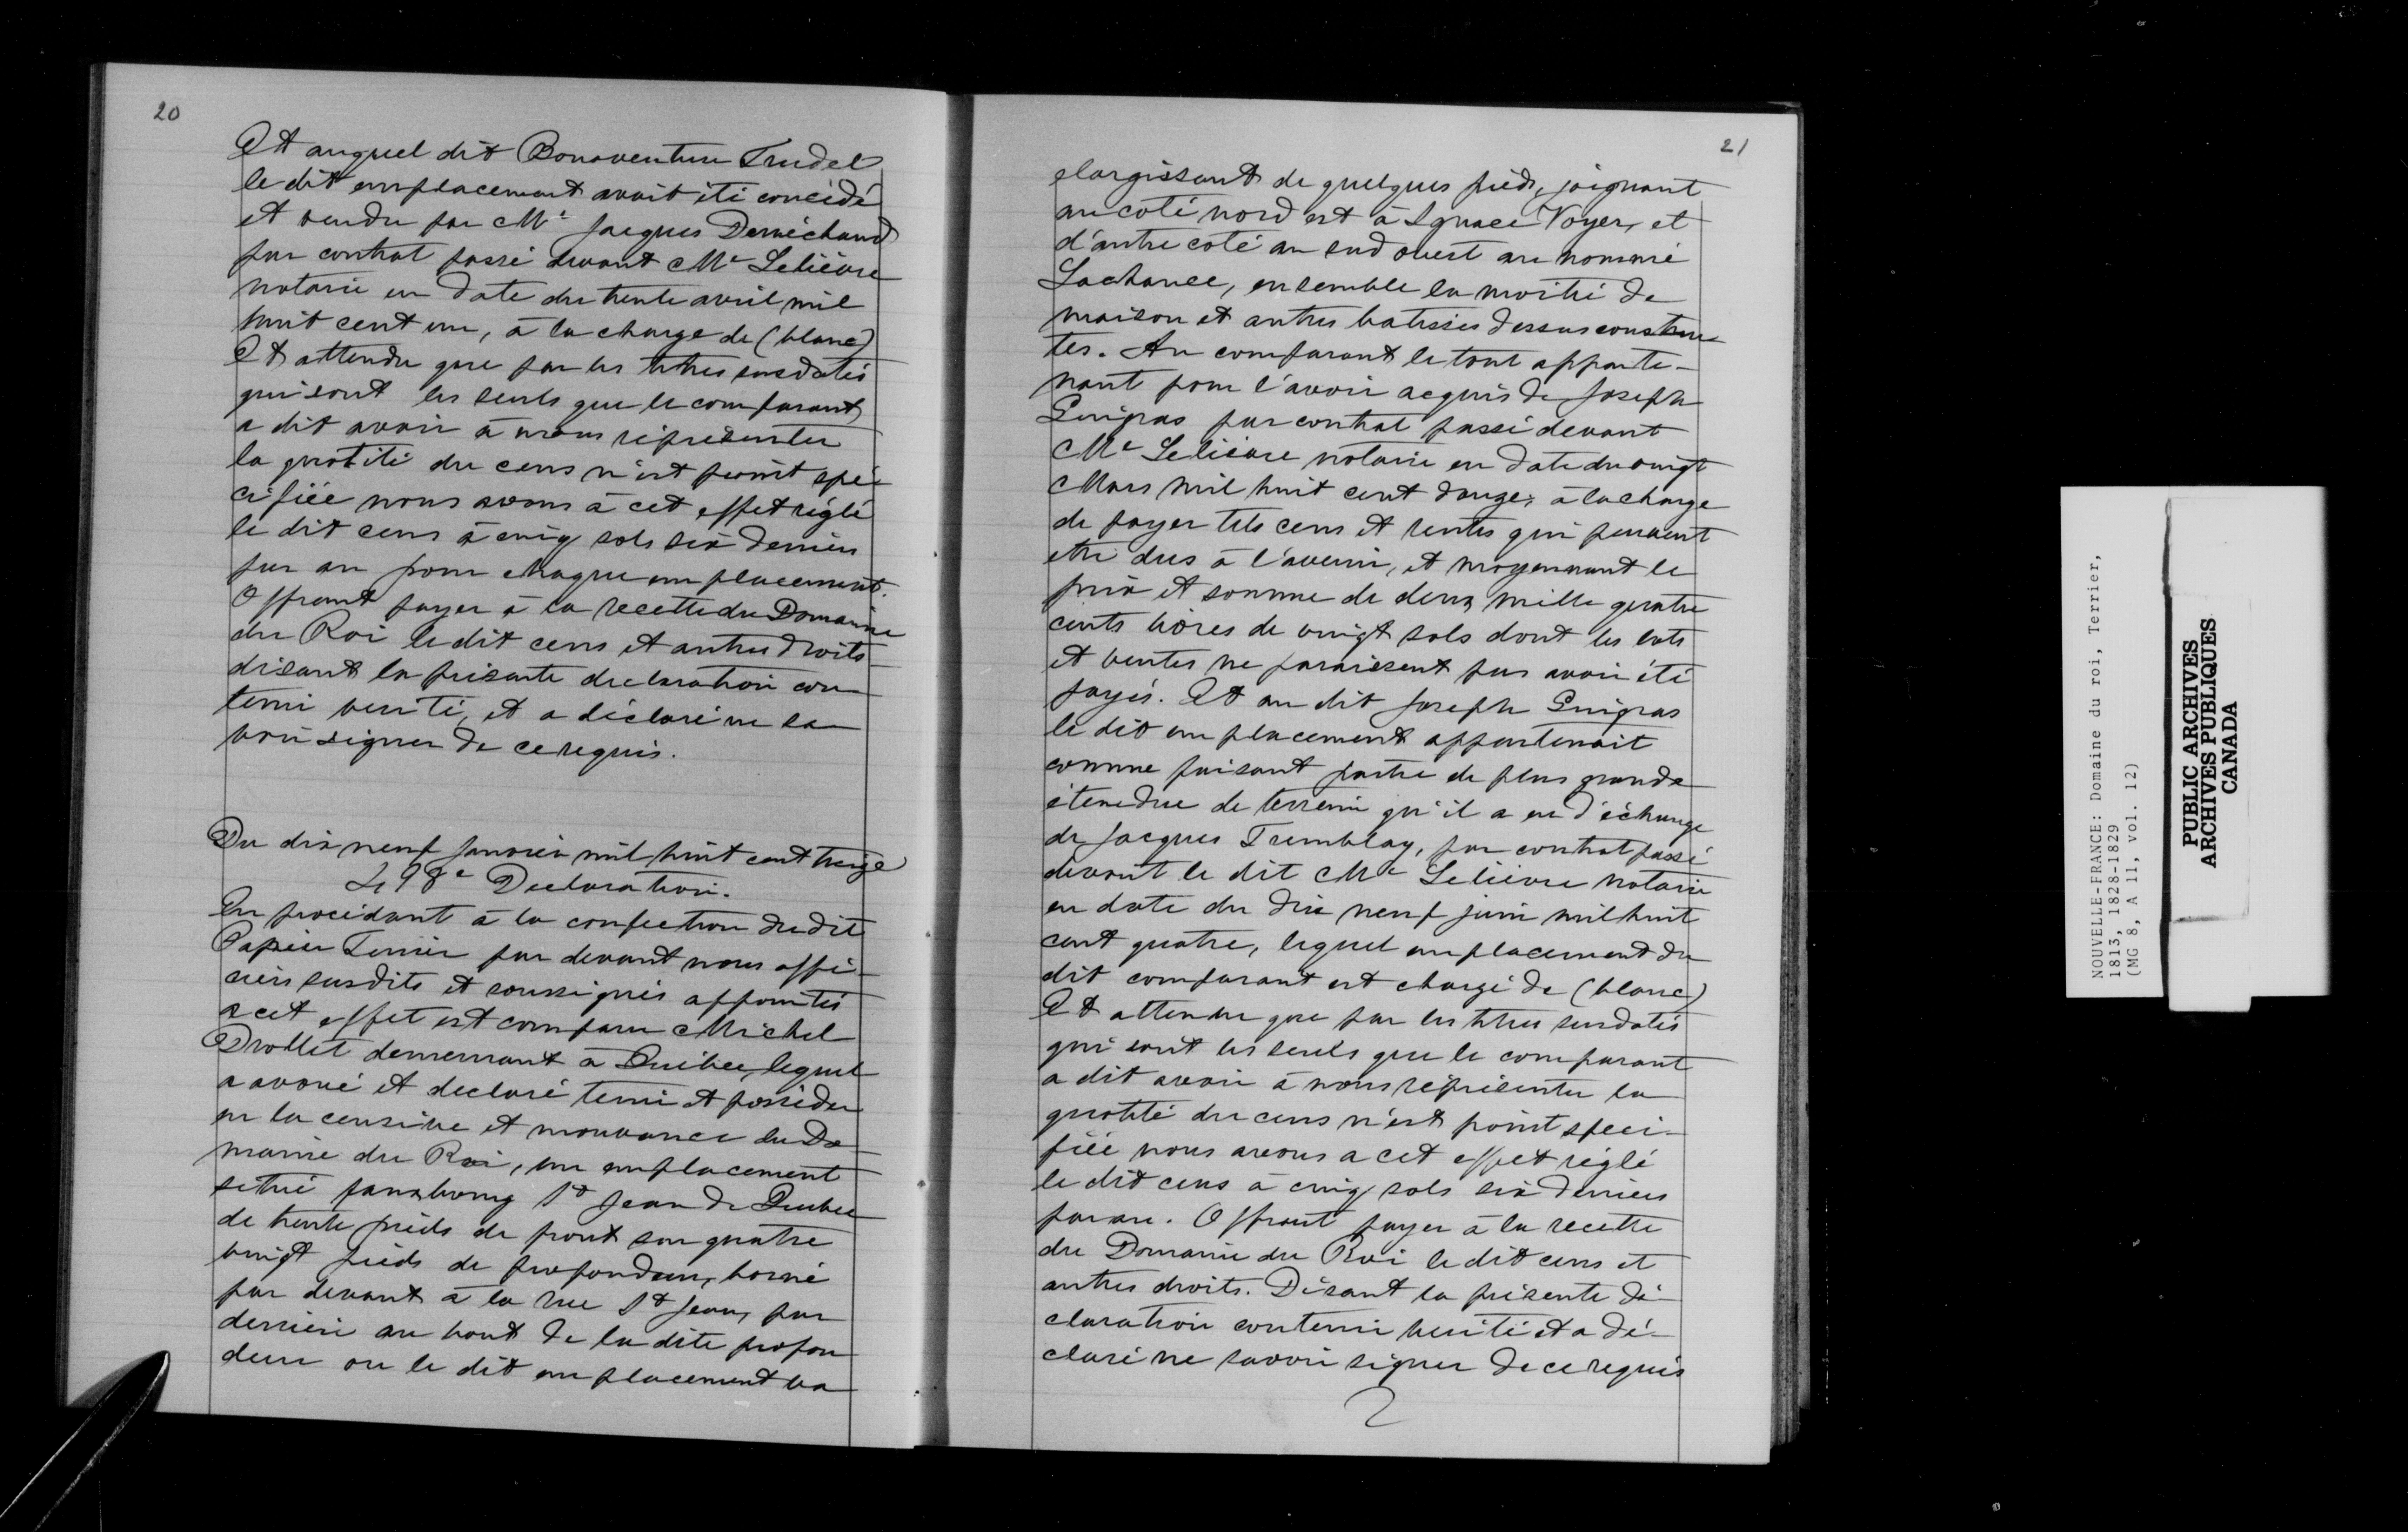 20
Et auquel dit Bonaventure Trudel
le dit emplacement avait été concédé
et vendu par Me Jacques Denéchaud
par contrat passé devant Me Lelièvre
notaire en date du trente avril mil
huit cent un, à la charge de (blanc)
Et attendu que par les titres susdatés
qui sont les seuls que le comparant
a dit avoir à nous réprésenter
la quotité du cens n'est point spé-
cifiée nous avons à cet effet réglé
le dit cens à cinq sols six deniers
par an pour chaque emplacement.
Offrant payer à la recette du Domaine
du Roi le dit cens et autres droits
disant la présente declaration con
tenir verité, et a déclaré ne sa
voir signer de ce requis.
Du dix neuf Janvier mil huit cent treize
498e Declaration.
En procédant à la confection du dit
Papier Terrier par devant nous offi-
ciers susdits et soussignés appointés
a cet effet est comparu Michel
Drollet demeurant à Québec, lequel
a avoué et declaré tenir et posséder
en la censive et mouvance du Do
maine du Roi, un emplacement
situé fauxbourg St Jean de Quebec
de trente pieds de front sur quatre
vingt pieds de profondeur, borné
par devant à la rue St Jean, par
derrière au bout de la dite profon
deur ou le dit emplacement va
21
elargissant de quelques pieds, joignant
au coté nord est à Ignace Voyer, et
d'autre coté au sud ouest au nommé
Lachance, ensemble la moitié de
maison et autres batisses dessus construi
tes. Au comparant le tout apparte-
nant pour l'avoir acquis de Joseph
Gingras par contrat passé devant
Me Lelièvre notaire en date du vingt
Mars mil huit cent douze, à la charge
de payer tels cens et rentes qui peuvent
etre dus à l'avenir, et moyennant le
prix et somme de deux mille quatre
cents livres de vingt sols dont les lots
et ventes ne paraissent pas avoir été
payés. Et au dit Joseph Gingras
le dit emplacement appartenait
comme faisant partie de plus grande
étendue de terrein qu'il a eu d'échange
de Jacques Tremblay, par contrat passé
devant le dit Me Lelièvre notaire
en date du dix neuf juin mil huit
cent quatre, lequel emplacement du
dit comparant est chargé de (blanc)
Et attendu que par les titres susdatés
qui sont les seuls que le comparant
a dit avoir à nous réprésenter la
quotité du cens n'est point speci-
fiée nous avons a cet effet réglé
le dit cens à cinq sols six deniers
par an. Offrant payer à la recette
du Domaine du Roi le dit cens et
autres droits. Disant la présente dé-
claration contenir verité et a dé-
claré ne savoir signer de ce requis
NOUVELLE-FRANCE: Domaine du roi, Terrier,
1813, 1828-1829
(MG 8, A 11, vol. 12)
PUBLIC ARCHIVES
ARCHIVES PUBLIQUES
CANADA